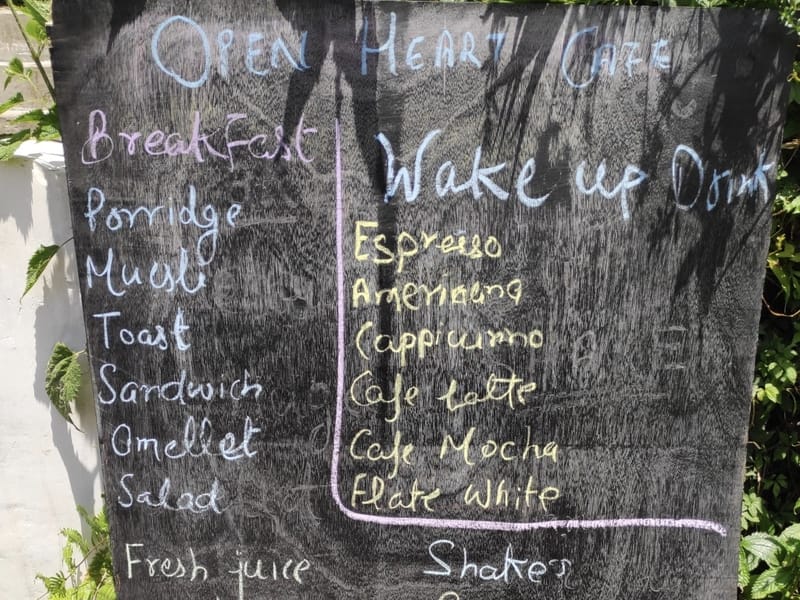 OPEN HEART CAFE
BreakFast
Porridge
Muesli
Toast
Sandwich
Omellet
Salad
Wake up Drink
Espresso
Americana
Cappicurno
Cafe Latte
Cafe Mocha
Flate White
Fresh juice
Shakes